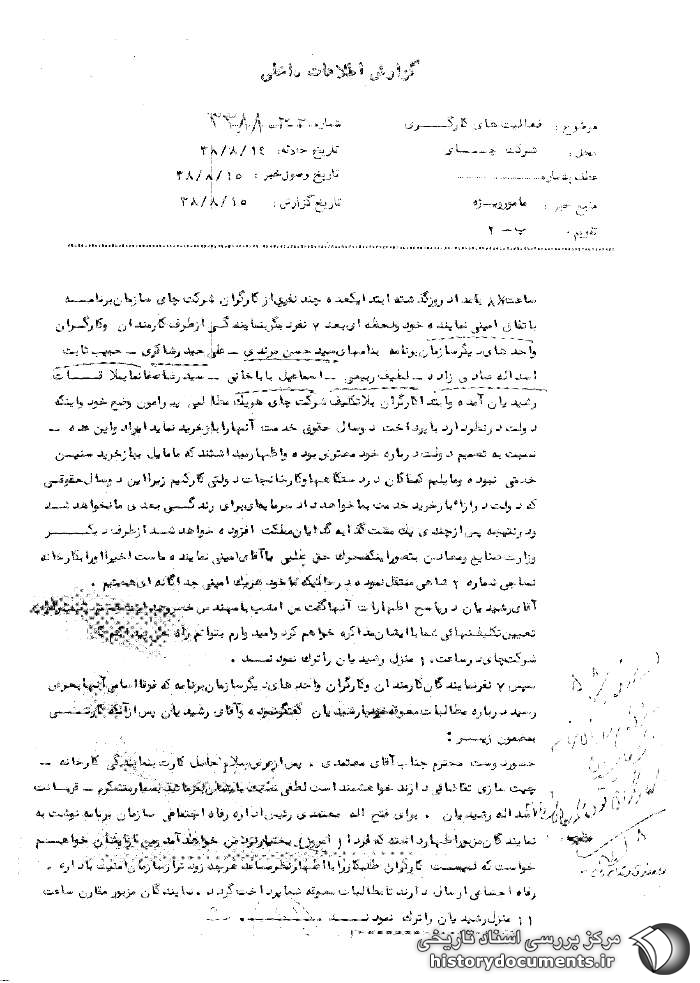 گزارش اطلاعات داخلی
موضوع : فعالیت های کارگری
شماره
محل : شرکت چای
تاریخ حادثه: ۳۸/۸/۱۴
عطف بشماره
تاریخ وصول خبر : ۳۸/۸/۱۵
منبع خبر : مامور ویژه
تاریخ گزارش : ۳۸/۸/۱۵
تقویم : ب - ۲
ساعت ۸ بامداد روز گذشته ابتدا یکعده چند نفری از کارگران شرکت چای سازمان برنامه
باتفاق امینی نماینده خود و لحظه ای بعد ۷ نفر دیگر بنمایندگی از طرف کارمندان و کارگران
واحدهای دیگر سازمان برنامه بنامهای سید حسن مرندی - علی حمید رضا - حبیب ثابت
اسداله صادق زاده - لطیف ربیعی - اسماعیل باباخانی - سید رضا بملاقات
رشیدیان آمده و ابتدا کارگران بلاتکلیف شرکت چای هریک مطالبی پیرامون وضع خود و اینکه
دولت در نظر دارد با پرداخت دو سال حقوق خدمت آنها را بازخرید نماید ایراد و این عده -
نسبت به تصمیم دولت درباره خود معترض بوده و اظهار میداشتند که ما مایل ببازخرید سنین
خدمتی نبوده و مایلیم کماکان در دستگاهها و کارخانجات دولتی کار کنیم زیرا این دو سال حقوقی
که دولت در ازاء بازخرید خدمت بما خواهد داد سرمایه ای برای زندگی بعدی ما نخواهد شد
و در نتیجه پس از چندی یک مشت گدا به گدایان مملکت افزوده خواهد شد از طرف دیگر
وزارت صنایع و معادن بتصور اینکه محرک حق طلبی ما آقای امینی نماینده ماست اخیرا او را بکارخانه
نساجی شماره ۲ شاهی منتقل نموده در حالیکه ما خود هریک امینی جداگانه ای هستیم .
آقای رشیدیان در پاسخ اظهارات آنها گفت من امشب با مهندس
تعیین تکلیف نهائی شما با ایشان مذاکره خواهم کرد و امیدوارم بتوانم
شرکت چای در ساعت ۱۰ منزل رشیدیان را ترک نمودند .
سپس ۷ نفر نمایندگان کارمندان و کارگران واحدهای دیگر سازمان برنامه که فوقا اسامی آنها بعرض
رسید درباره مطالبات معوقه خود با رشیدیان گفتگو نموده و آقای رشیدیان پس از آنکه کارتی
بمضمون زیر :
حضور دوست محترم جناب آقای معتمدی . پس از عرض سلام حامل کارت بنمایندگی کارخانه -
چیت سازی تقاضائی دارند خواهشمند است لطفی نسبت بایشان بفرمائید بسیار متشکرم - قربانت
اسداله رشیدیان . برای فتح اله معتمدی رئیس اداره رفاه اجتماعی سازمان برنامه نوشت به
نمایندگان مزبور اظهار داشت که فردا ( امروز ) بختیار نزد من خواهد آمد و من از ایشان خواهم
خواست که لیست کارگران طلبکار را با اظهار نظر مساعد هرچه زودتر از سازمان امنیت باداره -
رفاه اجتماعی ارسال دارند تا مطالبات معوقه شما پرداخت گردد . نمایندگان مزبور مقارن ساعت
۱۱ منزل رشیدیان را ترک نمودند
مرکز بررسی اسناد تاریخی
historydocuments.ir